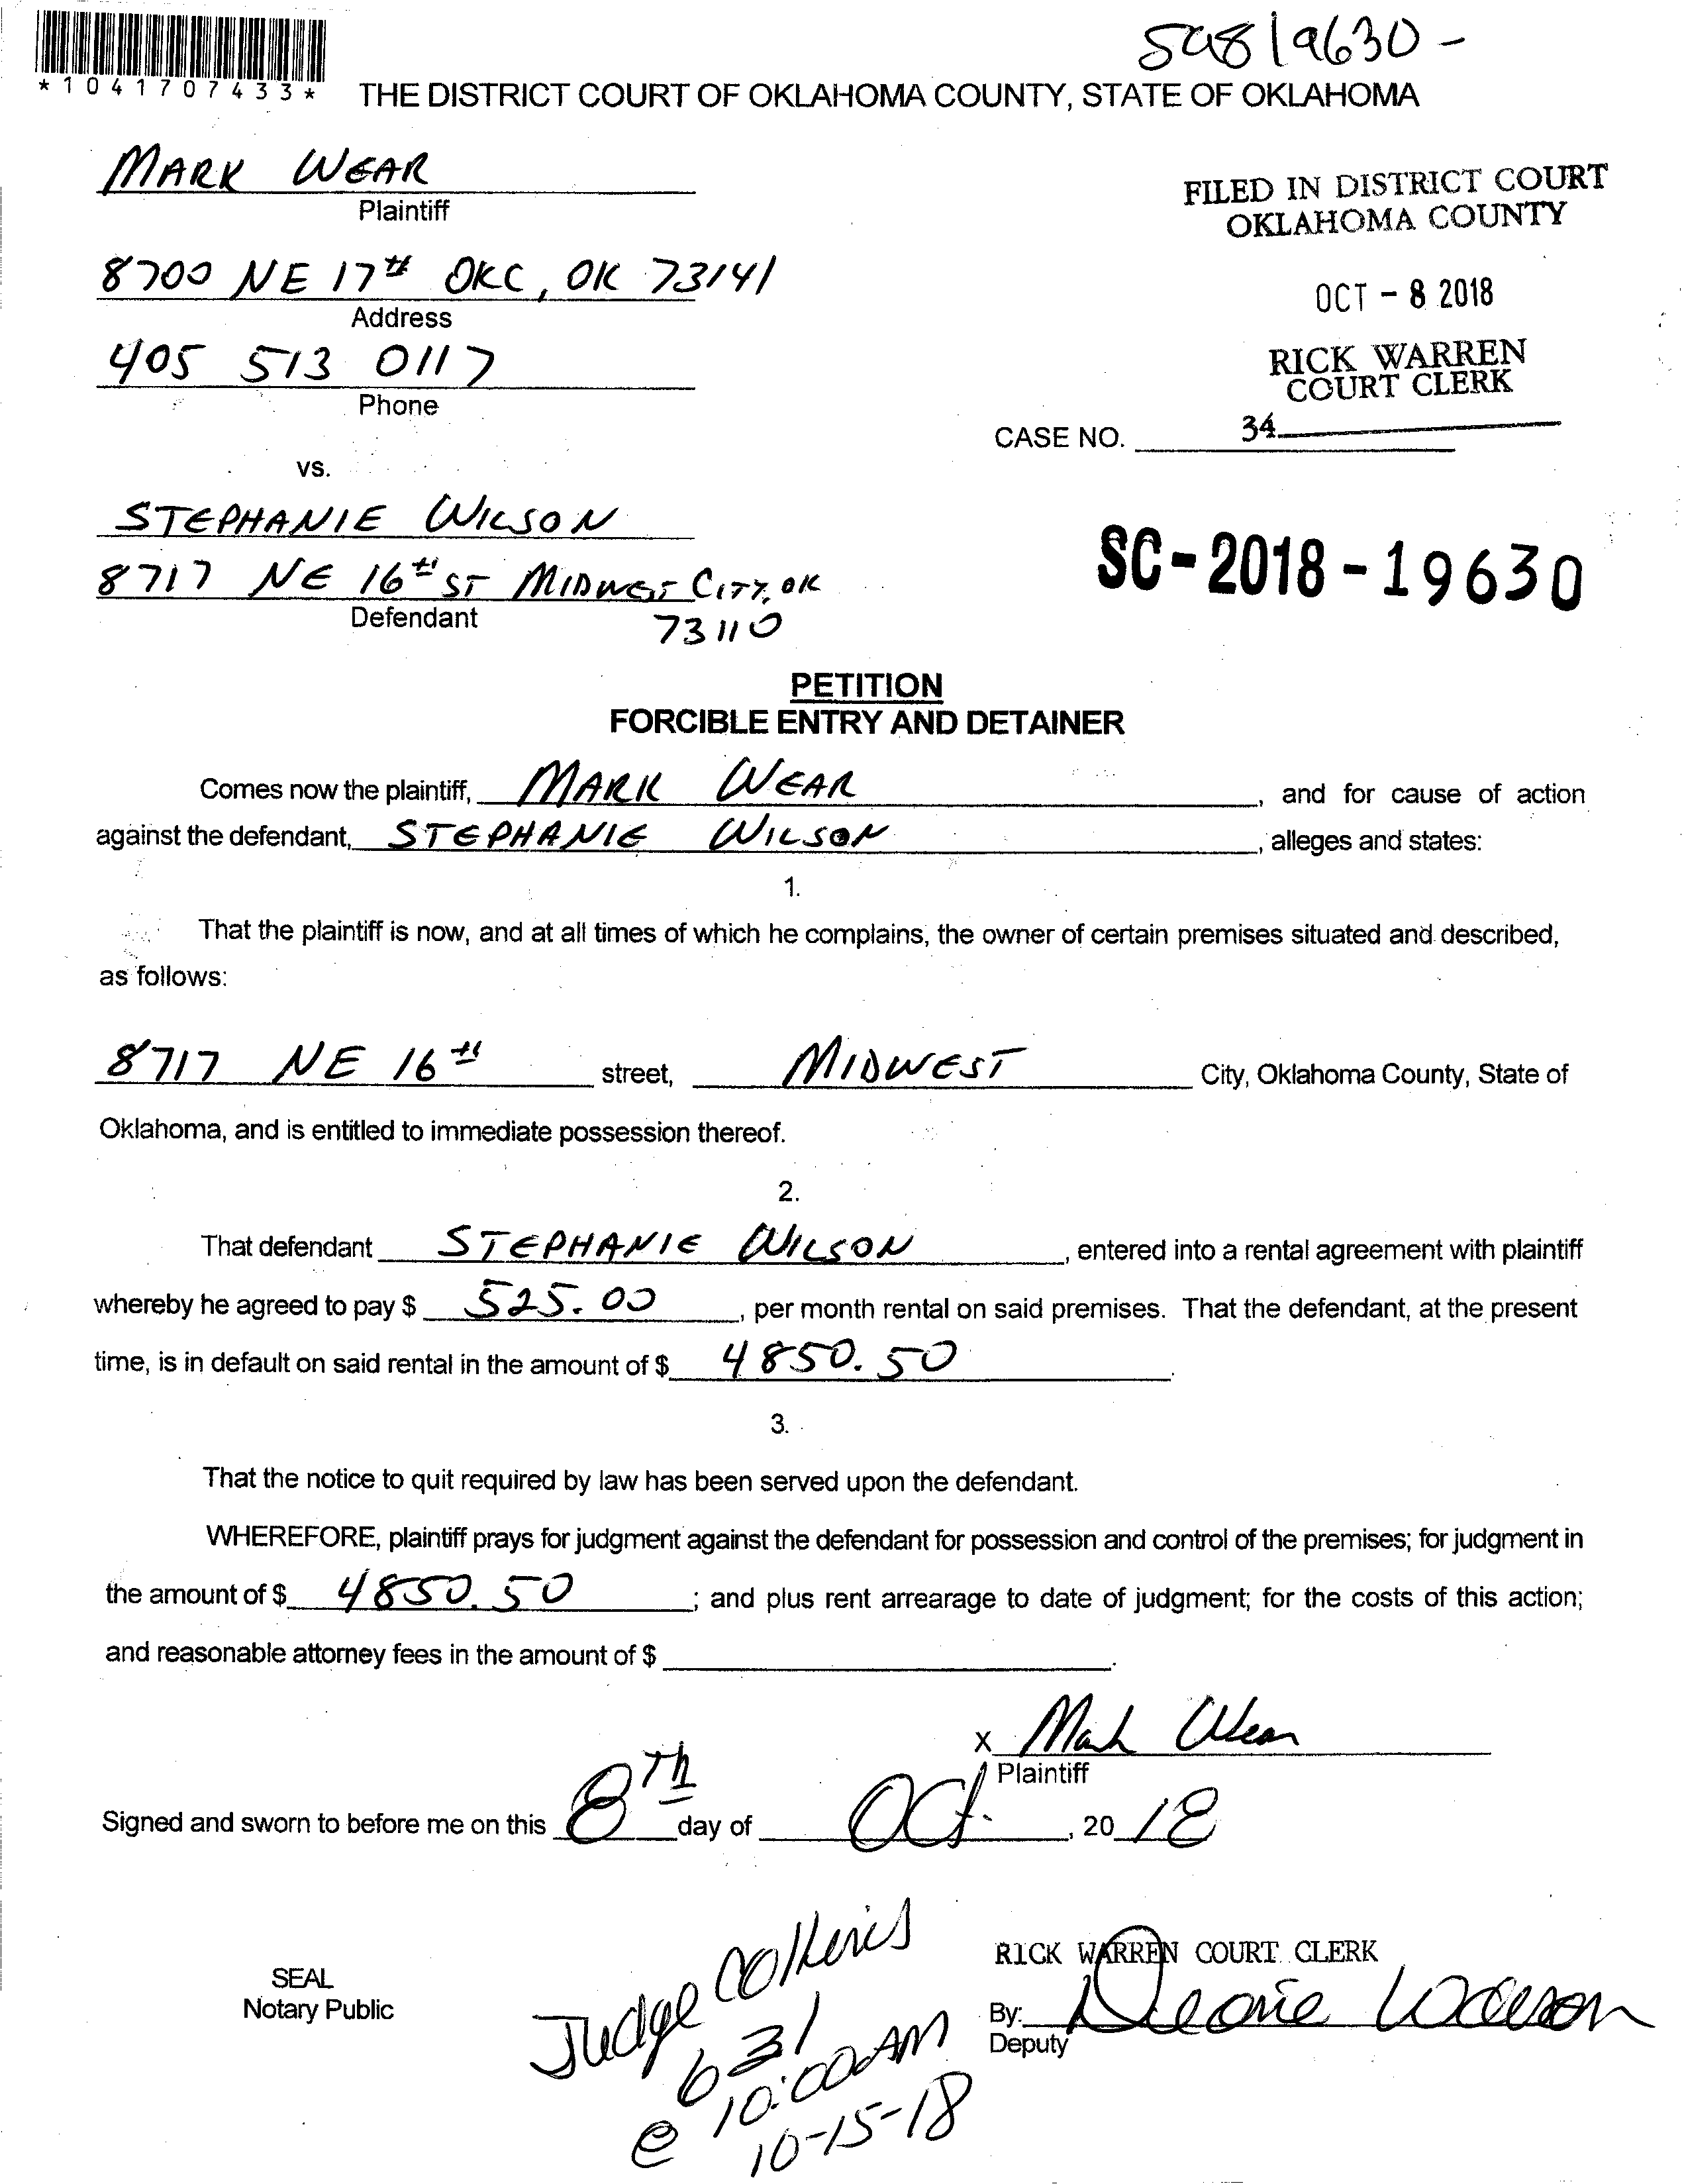 SC1819630-
*1041707433*
THE DISTRICT COURT OF OKLAHOMA COUNTY, STATE OF OKLAHOMA
MARK WEAR
Plaintiff
FILED IN DISTRICT COURT
OKLAHOMA COUNTY
8700 NE 17th OKC, OK 73141
Address
OCT - 8 2018
405 513 0117
Phone
RICK WARREN
COURT CLERK
CASE NO. 34
vs.
STEPHANIE WILSON
8717 NE 16th ST MIDWEST CITY, OK
Defendant 73110
SC-2018-19630
PETITION
FORCIBLE ENTRY AND DETAINER
Comes now the plaintiff, MARK WEAR, and for cause of action
against the defendant, STEPHANIE WILSON, alleges and states:
1.
That the plaintiff is now, and at all times of which he complains, the owner of certain premises situated and described,
as follows:
8717 NE 16th street, MIDWEST City, Oklahoma County, State of
Oklahoma, and is entitled to immediate possession thereof.
2.
That defendant STEPHANIE WILSON, entered into a rental agreement with plaintiff
whereby he agreed to pay $ 525.00, per month rental on said premises. That the defendant, at the present
time, is in default on said rental in the amount of $ 4850.50.
3.
That the notice to quit required by law has been served upon the defendant.
WHEREFORE, plaintiff prays for judgment against the defendant for possession and control of the premises; for judgment in
the amount of $ 4850.50; and plus rent arrearage to date of judgment; for the costs of this action;
and reasonable attorney fees in the amount of $ .
X Mark Wear
Plaintiff
Signed and sworn to before me on this 8Th day of Oct., 2018
SEAL
Notary Public
Judge Collins
631
@ 10:00 AM
10-15-18
RICK WARREN COURT CLERK
By:
Deputy